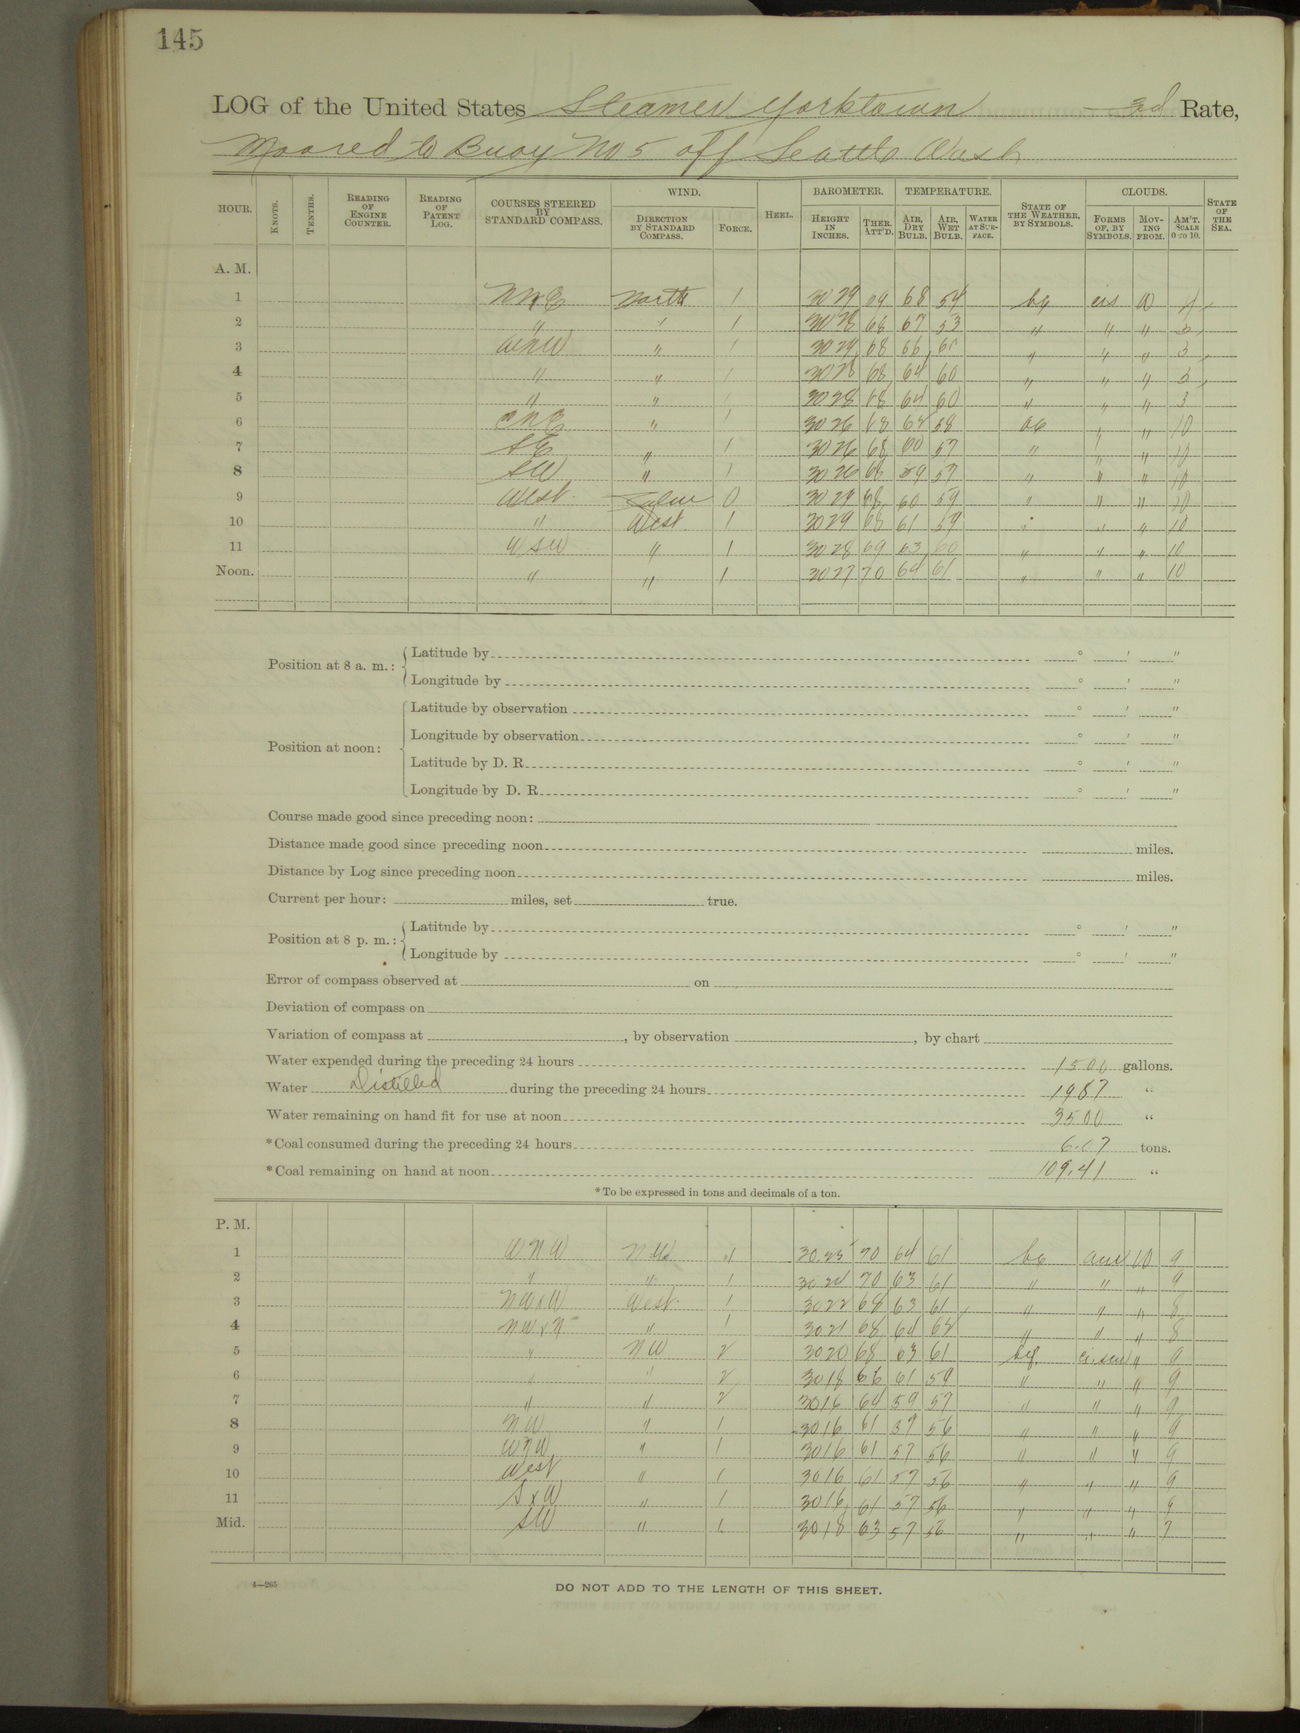 145
LOG of the United States Steamer Yorktown 3d Rate,
Moored to Buoy No 5 off Seattle Wash
HOUR. KNOTS. TENTHS. READING OF ENGINE COUNTER. READING OF PATENT LOG. COURSES STEERED BY STANDARD COMPASS. WIND. DIRECTION BY STANDARD COMPASS. FORCE. HEEL. BAROMETER. HEIGHT IN INCHES. THER. ATT'D. TEMPERATURE. AIR, DRY BULB. AIR, WET BULB. WATER AT SURFACE. STATE OF THE WEATHER, BY SYMBOLS. CLOUDS. FORMS OF, BY SYMBOLS. MOVING FROM. AM'T. SCALE 0 TO 10. STATE OF THE SEA.
A. M.
1 North 1 30 29 68 54 cis
2 " 1 30 28 68 67 53 " " "
3 WNW " 1 30 29 68 66 " " " 3
4 " " 1 30 28 68 64 60 " " "
5 " " 30 28 68 64 60 " " " 3
6 " 1 30 26 68 58 " " 10
7 SE " 1 30 26 68 60 57 " " " 10
8 SW " 1 30 26 59 57 " " " 10
9 West Calm 0 30 29 68 60 59 " " " 10
10 " West 1 30 29 68 61 59 " " " 10
11 WSW " 1 30 28 69 63 60 " " " 10
Noon. " " 1 30 27 70 64 61 " " " 10
Position at 8 a. m.: Latitude by ° ' "
Longitude by ° ' "
Position at noon: Latitude by observation ° ' "
Longitude by observation ° ' "
Latitude by D. R. ° ' "
Longitude by D. R. ° ' "
Course made good since preceding noon:
Distance made good since preceding noon miles.
Distance by Log since preceding noon miles.
Current per hour: miles, set true.
Position at 8 p. m.: Latitude by ° ' "
Longitude by ° ' "
Error of compass observed at on
Deviation of compass on
Variation of compass at , by observation , by chart
Water expended during the preceding 24 hours 1500 gallons.
Water Distilled during the preceding 24 hours 1987 "
Water remaining on hand fit for use at noon 3500 "
*Coal consumed during the preceding 24 hours tons.
*Coal remaining on hand at noon 109.41 "
*To be expressed in tons and decimals of a ton.
P. M.
1 WNW 1 30.25 70 64 61 9
2 " " 1 30 24 70 63 61 " " " 9
3 NWxW West 1 30 22 68 63 61 " " " 8
4 NWxN " 1 30 21 68 64 62 " " " 8
5 " NW 2 30 20 68 63 61 "
6 " " 2 30 18 66 61 59 " " " 9
7 " " 2 30 16 64 59 57 " " " 9
8 NW " 1 30 16 61 56 " " " 9
9 WNW " 1 30 16 61 57 56 " " " 9
10 West " 1 30 16 61 57 56 " " " 9
11 SxW " 1 30 16 61 57 56 " " " 9
Mid. SW " 1 30 18 63 57 56 " " " 7
4—265
DO NOT ADD TO THE LENGTH OF THIS SHEET.